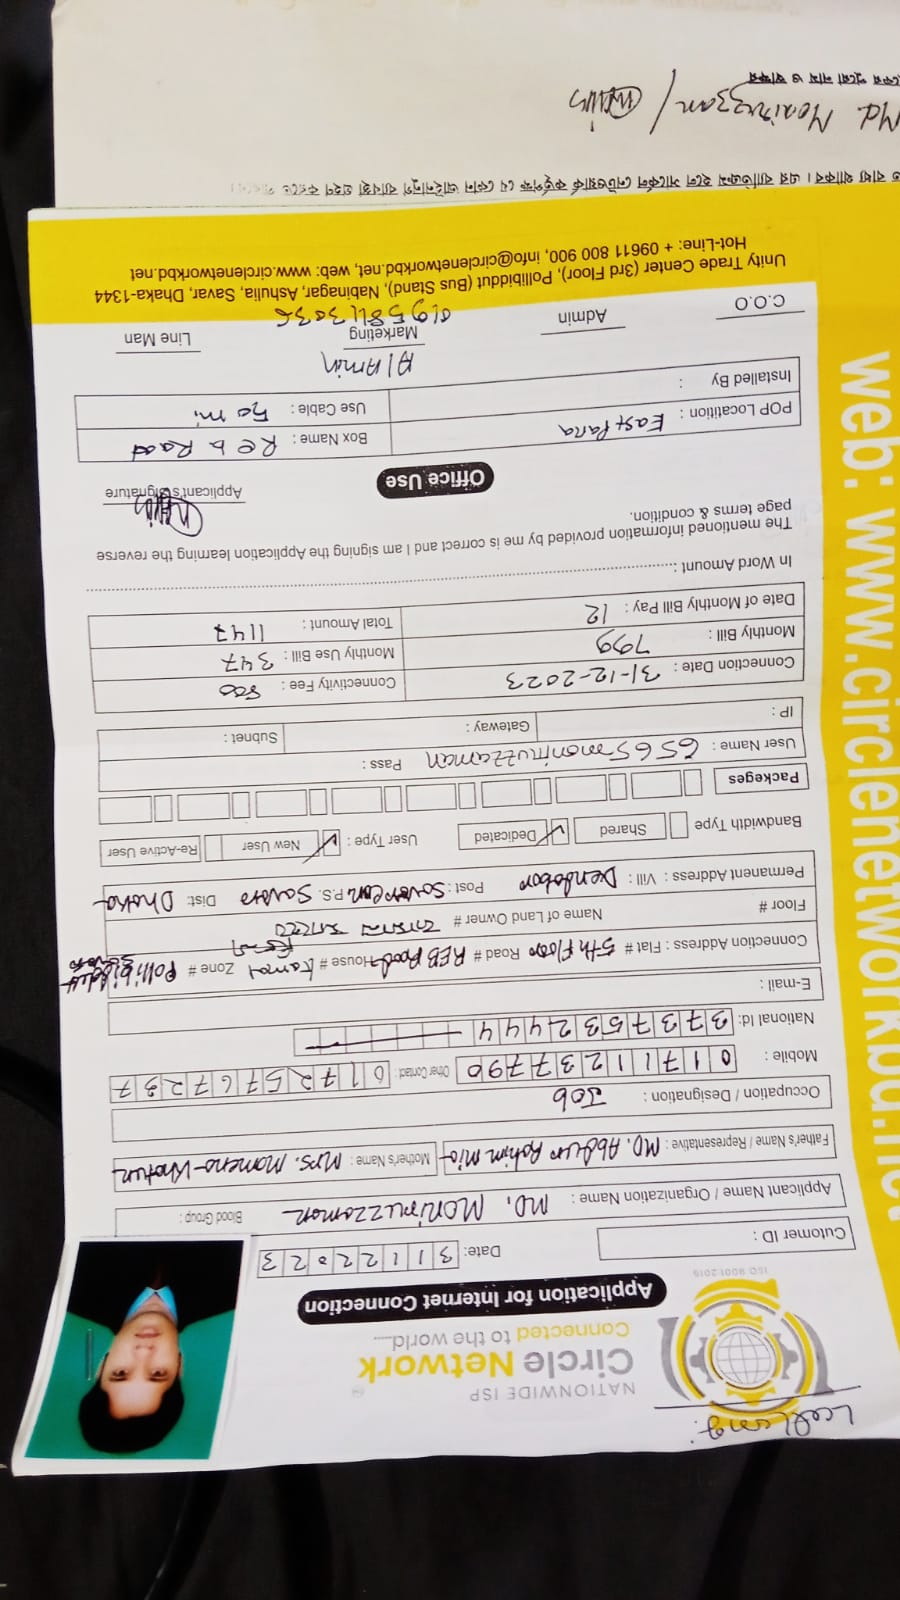 NATIONWIDE ISP
Circle Network
Connected to the world.....
ISO 9001:2015
Application for Internet Connection
Cutomer ID :
Date: 31122023
Applicant Name / Organization Name : MD. Moniruzzaman Blood Group :
Father's Name / Representative : MD. Abdur Rahim Mia Mother's Name : Mrs. Momena Khatun
Occupation / Designation : Job
Mobile : 01711237790 Other Contact : 01725767237
National Id: 3737532444
E-mail :
Connection Address : Flat # 5th Floor Road # REB Road House # Kamal Zone # Pollibiddut
Floor # Name of Land Owner #
Permanent Address : Vill : Dendabor Post : Savar Can P.S. Savar Dist: Dhaka
Bandwidth Type Shared Dedicated User Type : New User Re-Active User
Packeges
User Name : 6565moniruzzaman Pass :
IP : Gateway : Subnet :
Connection Date : 31-12-2023 Connectivity Fee : 800
Monthly Bill : 799 Monthly Use Bill : 347
Date of Monthly Bill Pay : 12 Total Amount : 1147
In Word Amount :
The mentioned information provided by me is correct and I am signing the Application learning the reverse
page terms & condition.
Applicant's Signature
Office Use
POP Locatition : East Para Box Name : REb Road
Installed By : Use Cable : 50 m.
Al Amin
C.O.O Admin Marketing Line Man
01958113036
Unity Trade Center (3rd Floor), Pollibiddut (Bus Stand), Nabinagar, Ashulia, Savar, Dhaka-1344
Hot-Line: + 09611 800 900, info@circlenetworkbd.net, web: www.circlenetworkbd.net
web: www.circlenetworkbd.net
Md. Moniruzzaman /